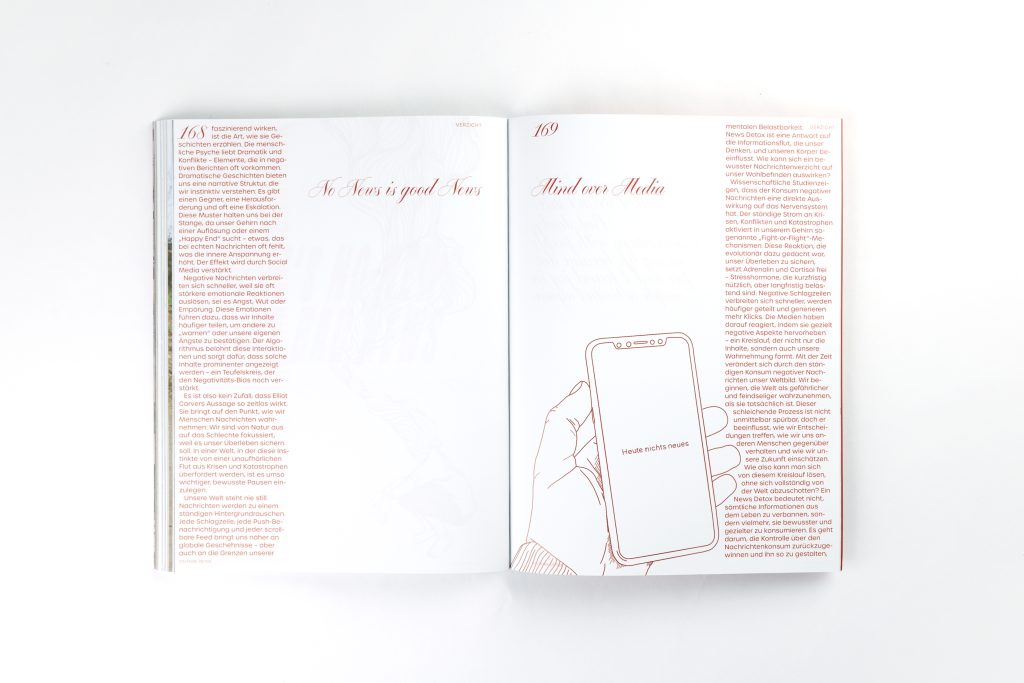 168
VERZICHT
faszinierend wirken,
ist die Art, wie sie Ge-
schichten erzählen. Die mensch-
liche Psyche liebt Dramatik und
Konflikte – Elemente, die in nega-
tiven Berichten oft vorkommen.
Dramatische Geschichten bieten
uns eine narrative Struktur, die
wir instinktiv verstehen: Es gibt
einen Gegner, eine Herausfor-
derung und oft eine Eskalation.
Diese Muster halten uns bei der
Stange, da unser Gehirn nach
einer Auflösung oder einem
„Happy End“ sucht – etwas, das
bei echten Nachrichten oft fehlt,
was die innere Anspannung er-
höht. Der Effekt wird durch Social
Media verstärkt.
Negative Nachrichten verbrei-
ten sich schneller, weil sie oft
stärkere emotionale Reaktionen
auslösen, sei es Angst, Wut oder
Empörung. Diese Emotionen
führen dazu, dass wir Inhalte
häufiger teilen, um andere zu
„warnen“ oder unsere eigenen
Ängste zu bestätigen. Der Algo-
rithmus belohnt diese Interaktio-
nen und sorgt dafür, dass solche
Inhalte prominenter angezeigt
werden – ein Teufelskreis, der
den Negativitäts-Bias noch ver-
stärkt.
Es ist also kein Zufall, dass Elliot
Carvers Aussage so zeitlos wirkt.
Sie bringt auf den Punkt, wie wir
Menschen Nachrichten wahr-
nehmen. Wir sind von Natur aus
auf das Schlechte fokussiert,
weil es unser Überleben sichern
soll. In einer Welt, in der diese Ins-
tinkte von einer unaufhörlichen
Flut aus Krisen und Katastrophen
überfordert werden, ist es umso
wichtiger, bewusste Pausen ein-
zulegen.
Unsere Welt steht nie still.
Nachrichten werden zu einem
ständigen Hintergrundrauschen.
Jede Schlagzeile, jede Push-Be-
nachrichtigung und jeder scroll-
bare Feed bringt uns näher an
globale Geschehnisse – aber
auch an die Grenzen unserer
No News is good News
169
VERZICHT
Mind over Media
Heute nichts neues
mentalen Belastbarkeit.
News Detox ist eine Antwort auf
die Informationsflut, die unser
Denken, und unseren Körper be-
einflusst. Wie kann sich ein be-
wusster Nachrichtenverzicht auf
unser Wohlbefinden auswirken?
Wissenschaftliche Studienzei-
gen, dass der Konsum negativer
Nachrichten eine direkte Aus-
wirkung auf das Nervensystem
hat. Der ständige Strom an Kri-
sen, Konflikten und Katastrophen
aktiviert in unserem Gehirn so-
genannte „Fight-or-Flight“-Me-
chanismen. Diese Reaktion, die
evolutionär dazu gedacht war,
unser Überleben zu sichern,
setzt Adrenalin und Cortisol frei
– Stresshormone, die kurzfristig
nützlich, aber langfristig belas-
tend sind. Negative Schlagzeilen
verbreiten sich schneller, werden
häufiger geteilt und generieren
mehr Klicks. Die Medien haben
darauf reagiert, indem sie gezielt
negative Aspekte hervorheben
– ein Kreislauf, der nicht nur die
Inhalte, sondern auch unsere
Wahrnehmung formt. Mit der Zeit
verändert sich durch den stän-
digen Konsum negativer Nach-
richten unser Weltbild. Wir be-
ginnen, die Welt als gefährlicher
und feindseliger wahrzunehmen,
als sie tatsächlich ist. Dieser
schleichende Prozess ist nicht
unmittelbar spürbar, doch er
beeinflusst, wie wir Entschei-
dungen treffen, wie wir uns an-
deren Menschen gegenüber
verhalten und wie wir un-
sere Zukunft einschätzen.
Wie also kann man sich
von diesem Kreislauf lösen,
ohne sich vollständig von
der Welt abzuschotten? Ein
News Detox bedeutet nicht,
sämtliche Informationen aus
dem Leben zu verbannen, son-
dern vielmehr, sie bewusster und
gezielter zu konsumieren. Es geht
darum, die Kontrolle über den
Nachrichtenkonsum zurückzuge-
winnen und ihn so zu gestalten,